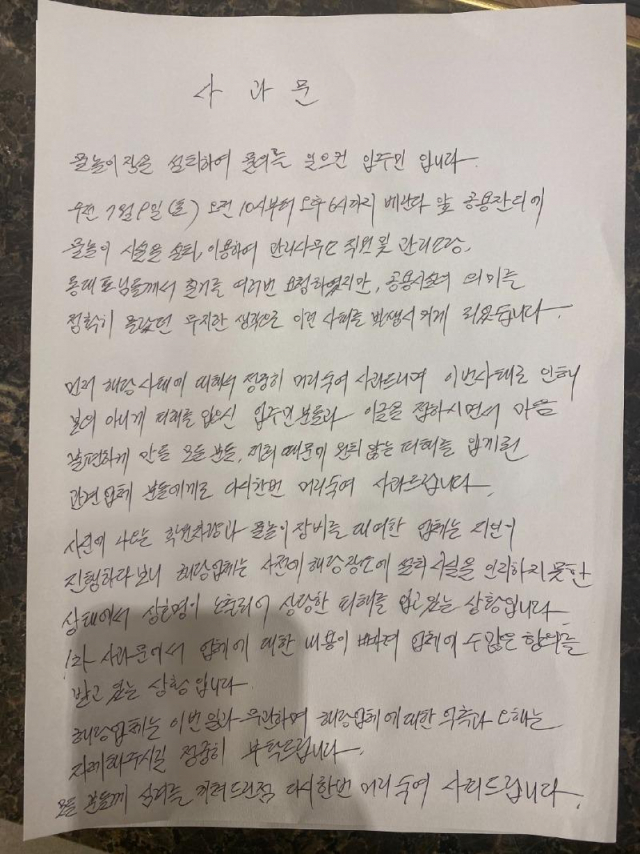 사 과 문
물놀이장을 설치하여 물의를 일으킨 입주민 입니다.
우선 7월 9일(토) 오전 10시부터 오후 6시까지 베란다 앞 공용잔디에
물놀이 시설을 설치, 이용하여 관리사무소 직원 및 관리소장,
동대표님들께서 철거를 여러번 요청하였지만, 공용시설의 의미를
정확히 몰랐던 무지한 생각으로 이런 사태를 발생시키게 되었습니다.
먼저 해당사태에 대해서 정중히 머리숙여 사과드리며 이번사태로 인해
본의 아니게 피해를 입으신 입주민분들과 이글을 접하시면서 마음
불편하게 만든 모든 분들, 저희 때문에 원치 않는 피해를 입게된
관련업체 분들에게도 다시한번 머리숙여 사과드립니다.
사진에 나오는 학원차량과 물놀이 장비를 대여한 업체는 지인이
진행하다보니 해당업체는 사전에 해당장소에 설치 시설을 인지하지 못한
상태에서 상호명이 노출되어 상당한 피해를 입고있는 상황입니다.
1차 사과문에서 업체에 대한 내용이 빠져 업체에 수많은 항의를
받고 있는 상황입니다.
해당업체는 이번일과 무관하며 해당업체에 대한 의혹과 오해는
자제해주시길 정중히 부탁드립니다.
모든 분들께 심려를 끼쳐드린점 다시한번 머리숙여 사죄드립니다.